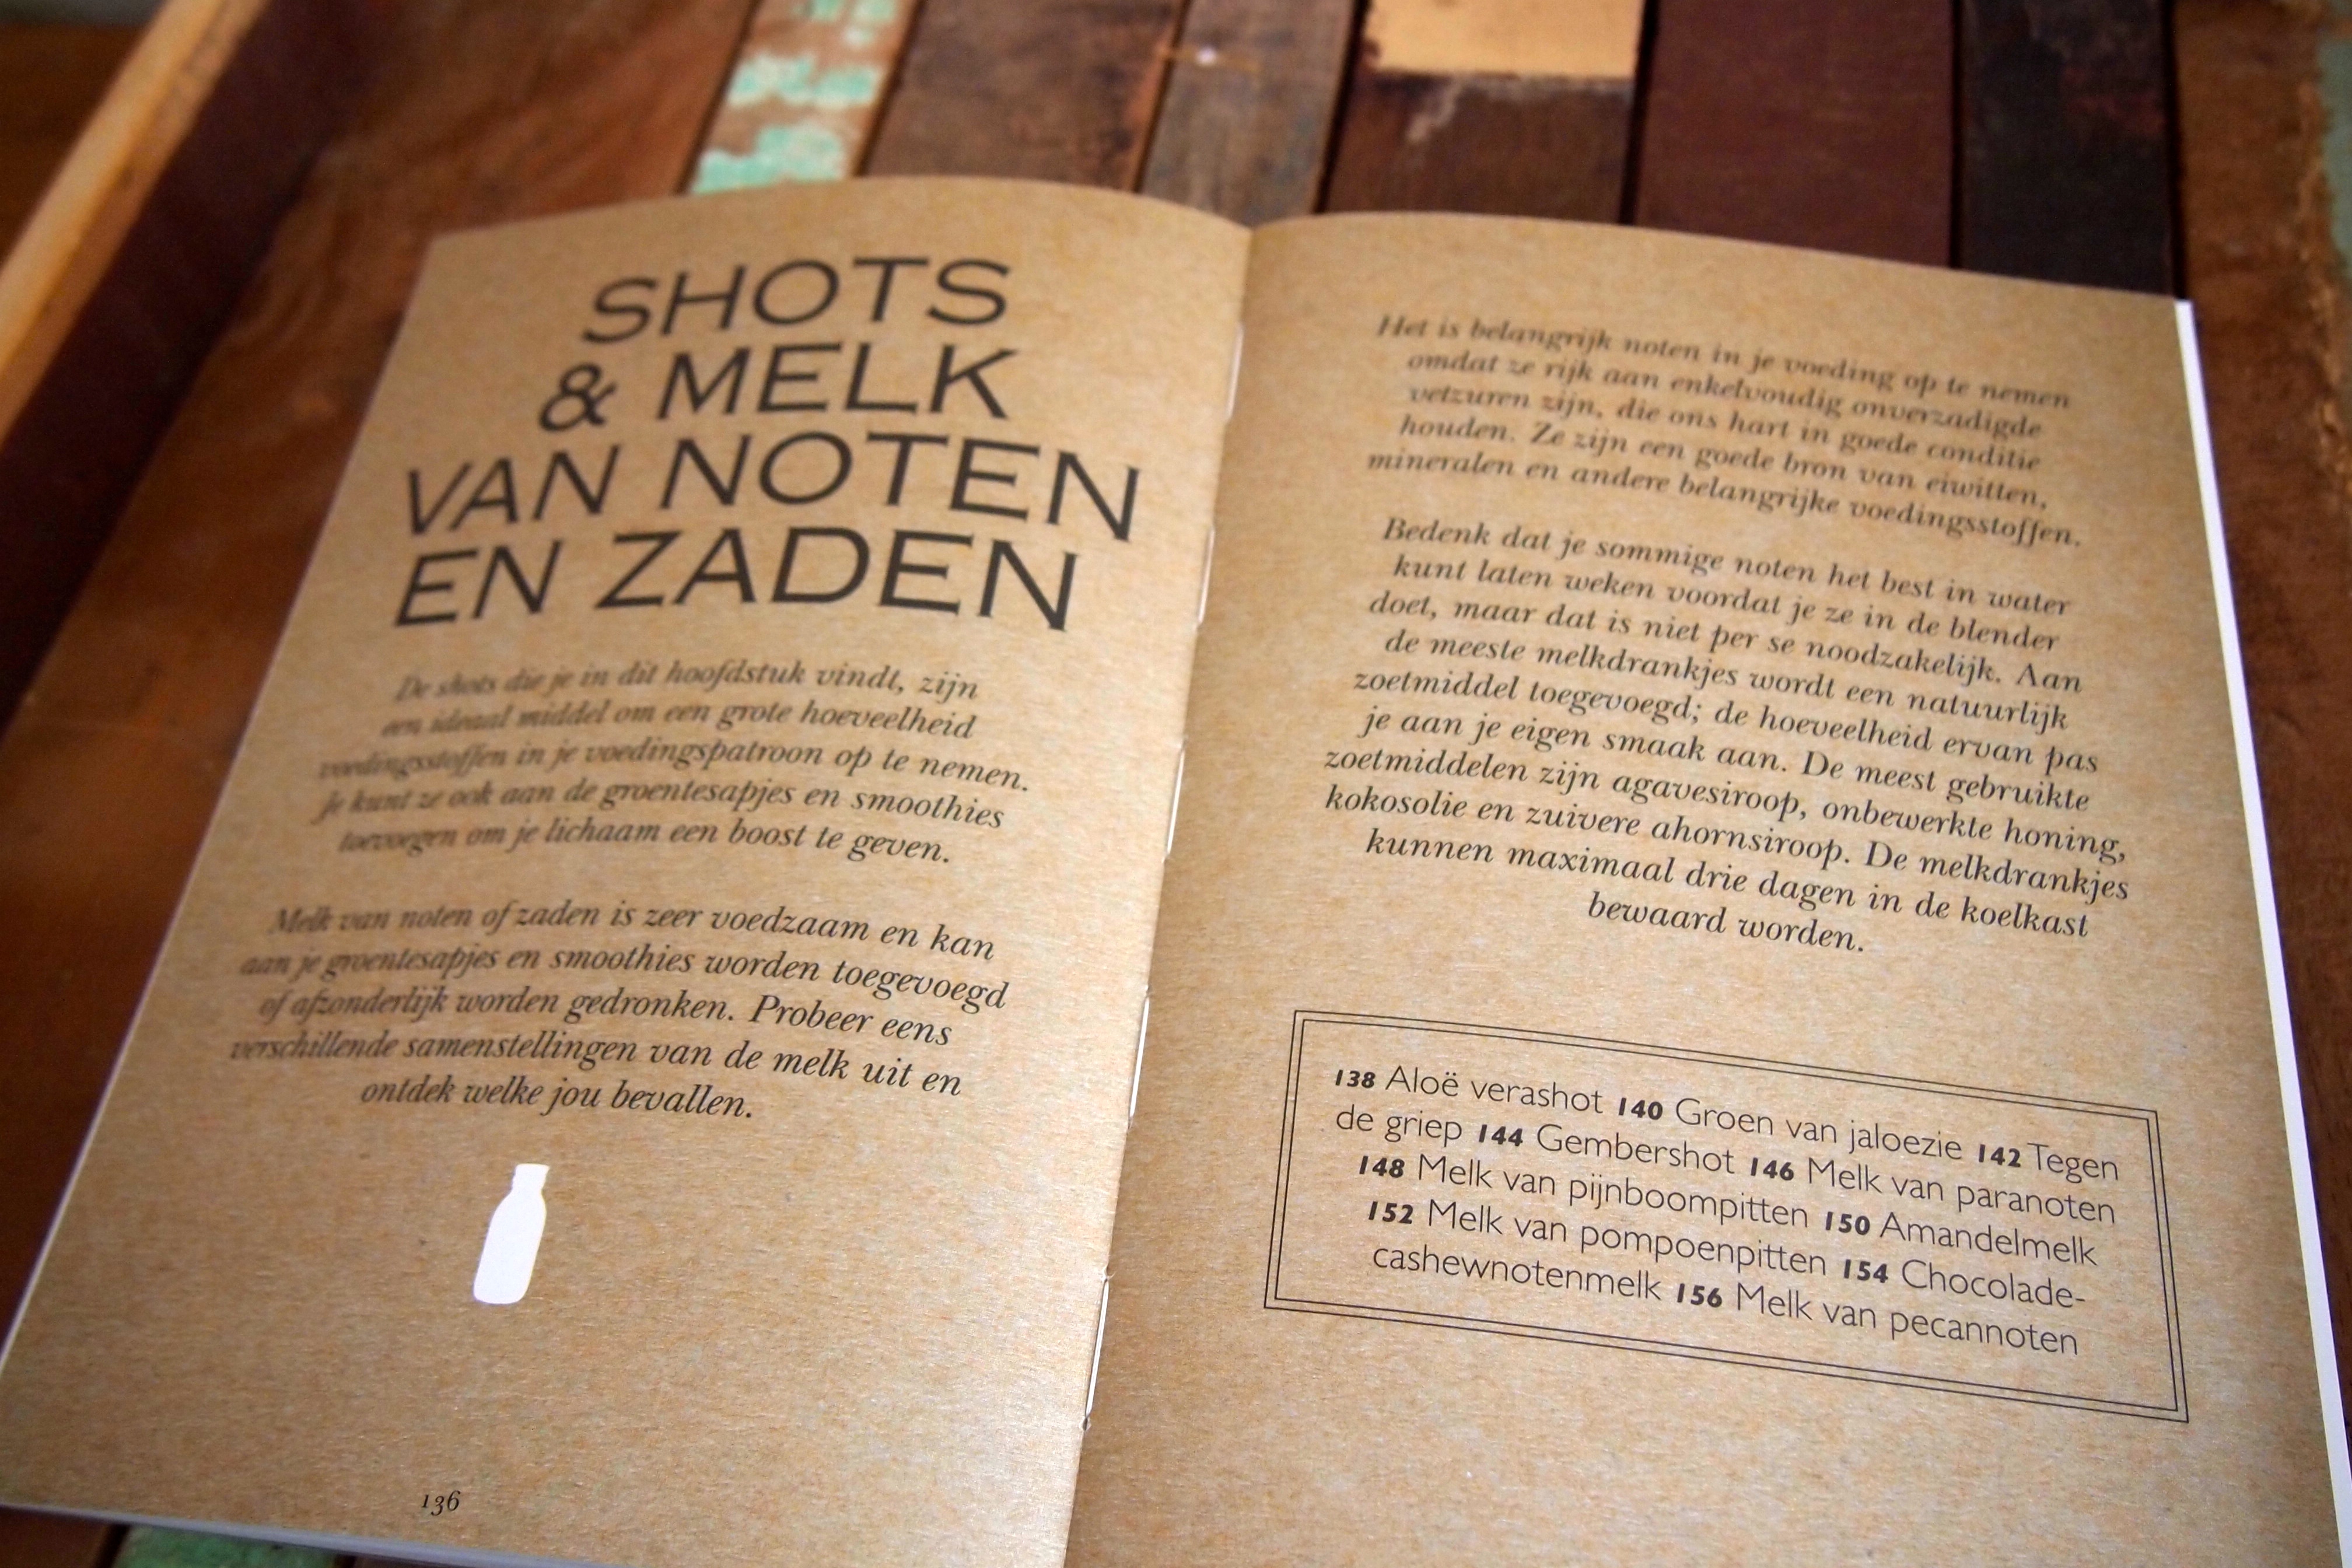 SHOTS
& MELK
VAN NOTEN
EN ZADEN
De shots die je in dit hoofdstuk vindt, zijn
een ideaal middel om een grote hoeveelheid
voedingsstoffen in je voedingspatroon op te nemen.
Je kunt ze ook aan de groentesapjes en smoothies
toevoegen om je lichaam een boost te geven.
Melk van noten of zaden is zeer voedzaam en kan
aan je groentesapjes en smoothies worden toegevoegd
of afzonderlijk worden gedronken. Probeer eens
verschillende samenstellingen van de melk uit en
ontdek welke jou bevallen.
136
Het is belangrijk noten in je voeding op te nemen
omdat ze rijk aan enkelvoudig onverzadigde
vetzuren zijn, die ons hart in goede conditie
houden. Ze zijn een goede bron van eiwitten,
mineralen en andere belangrijke voedingsstoffen.
Bedenk dat je sommige noten het best in water
kunt laten weken voordat je ze in de blender
doet, maar dat is niet per se noodzakelijk. Aan
de meeste melkdrankjes wordt een natuurlijk
zoetmiddel toegevoegd; de hoeveelheid ervan pas
je aan je eigen smaak aan. De meest gebruikte
zoetmiddelen zijn agavesiroop, onbewerkte honing,
kokosolie en zuivere ahornsiroop. De melkdrankjes
kunnen maximaal drie dagen in de koelkast
bewaard worden.
138 Aloë verashot 140 Groen van jaloezie 142 Tegen
de griep 144 Gembershot 146 Melk van paranoten
148 Melk van pijnboompitten 150 Amandelmelk
152 Melk van pompoenpitten 154 Chocolade-
cashewnotenmelk 156 Melk van pecannoten